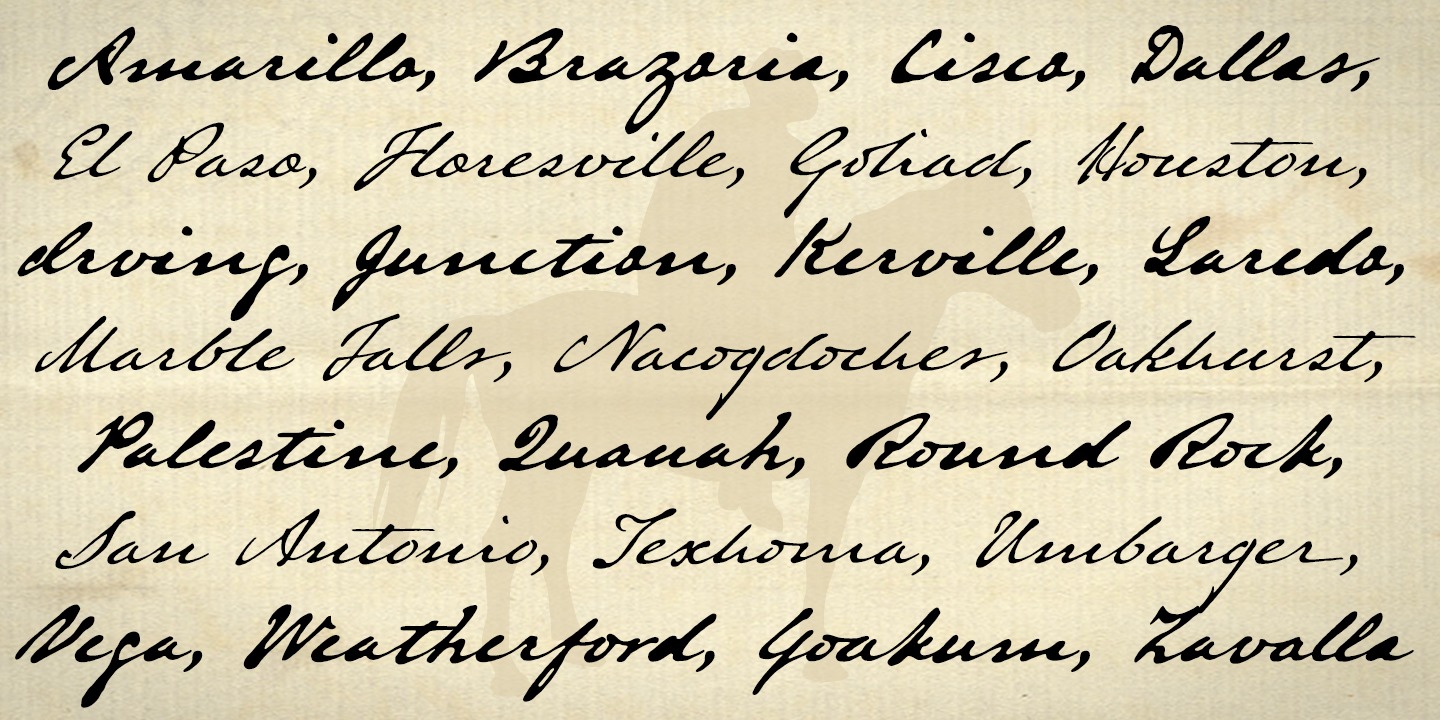 Amarillo, Brazoria, Cisco, Dallas,
El Paso, Floresville, Goliad, Houston,
Irving, Junction, Kerville, Laredo,
Marble Falls, Nacogdoches, Oakhurst,
Palestine, Quanah, Round Rock,
San Antonio, Texhoma, Umbarger,
Vega, Weatherford, Yoakum, Zavalla